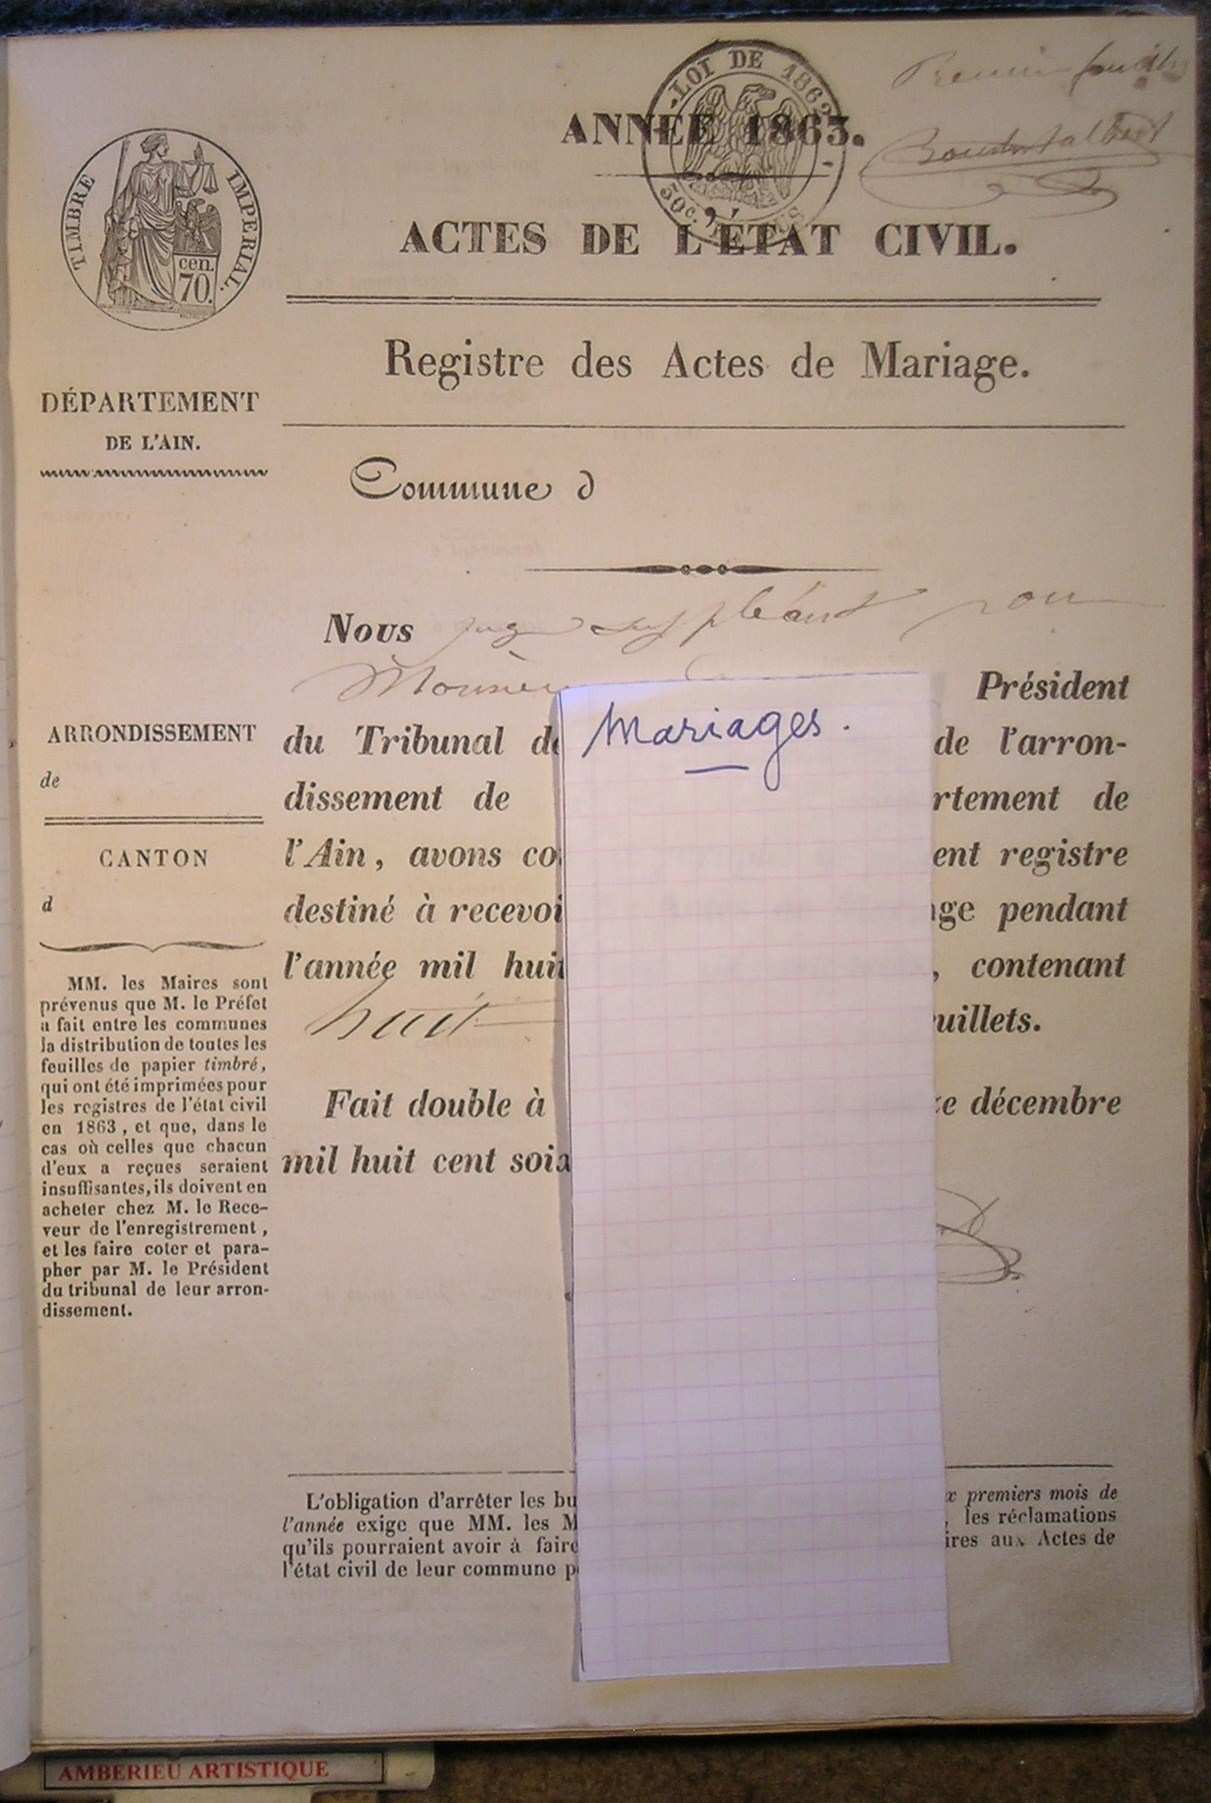 Premier feuillet
LOI DE 1862
50c.
ANNÉE 1863.
ACTES DE L'ÉTAT CIVIL.
TIMBRE IMPERIAL.
cen.
70.
Registre des Actes de Mariage.
DÉPARTEMENT
DE L'AIN.
Commune d
Nous juge suppléant pour
Président
du Tribunal de
de l'arron-
dissement de
rtement de
l'Ain, avons co
ent registre
destiné à recevoi
ge pendant
l'année mil huit
, contenant
huit
uillets.
Fait double à
ze décembre
mil huit cent soix
Mariages.
ARRONDISSEMENT
de
CANTON
d
MM. les Maires sont
prévenus que M. le Préfet
a fait entre les communes
la distribution de toutes les
feuilles de papier timbré,
qui ont été imprimées pour
les registres de l'état civil
en 1863, et que, dans le
cas où celles que chacun
d'eux a reçues seraient
insuffisantes, ils doivent en
acheter chez M. le Rece-
veur de l'enregistrement,
et les faire coter et para-
pher par M. le Président
du tribunal de leur arron-
dissement.
L'obligation d'arrêter les bu
x premiers mois de
l'année exige que MM. les M
, les réclamations
qu'ils pourraient avoir à faire
ires aux Actes de
l'état civil de leur commune p
AMBERIEU ARTISTIQUE